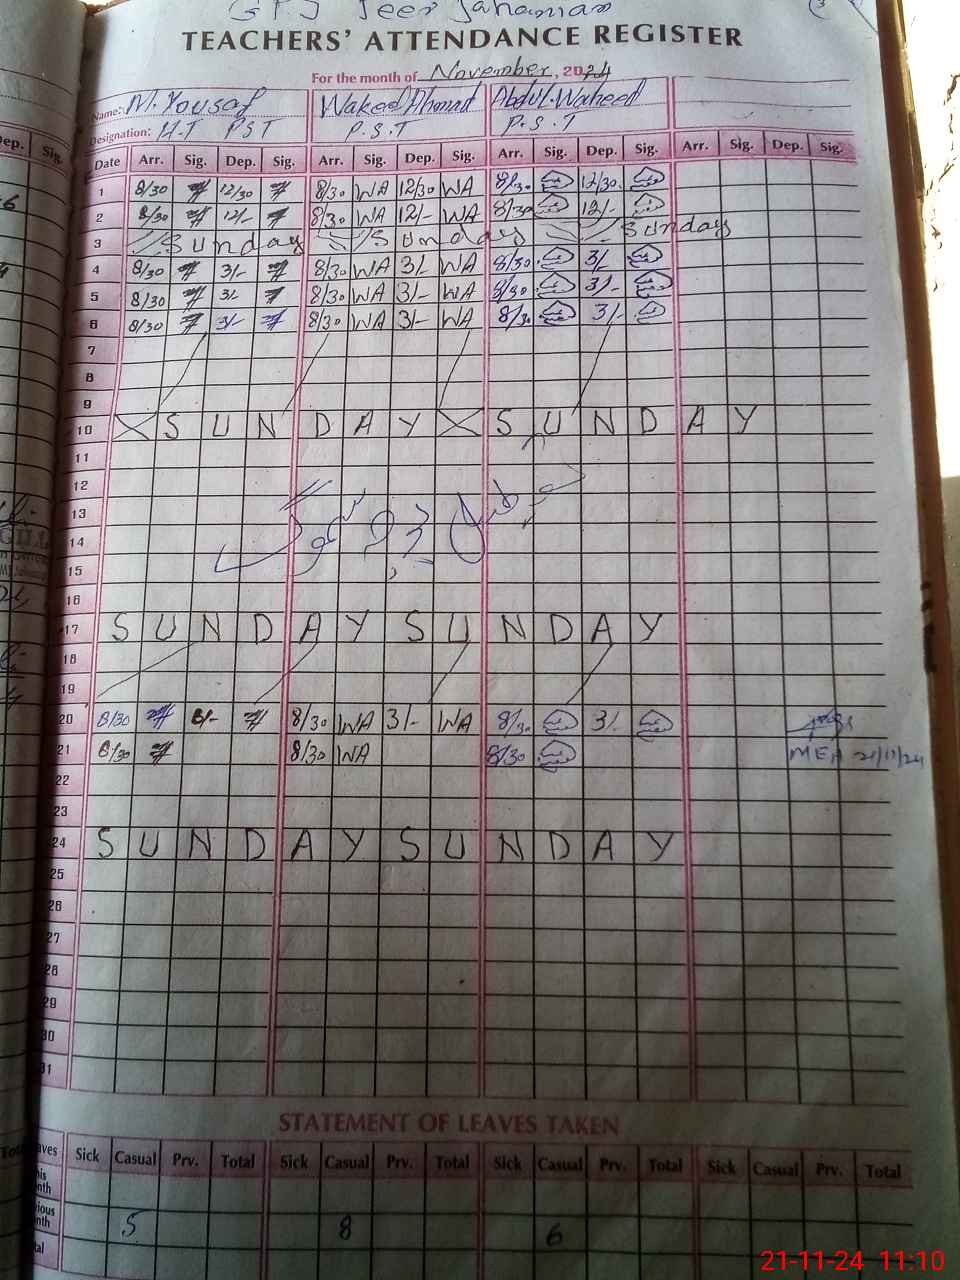 TEACHERS' ATTENDANCE REGISTER
For the month of November, 2024
Name: M. Yousaf Waked Ahmad Abdul Waheed
Designation: H.T PST P.S.T P.S.T
Date Arr. Sig. Dep. Sig. Arr. Sig. Dep. Sig. Arr. Sig. Dep. Sig. Arr. Sig. Dep. Sig.
1 8/30 12/30 8/30 WA 12/30 WA 8/30 12/30
2 8/30 12/- 8/30 WA 12/- WA 8/30 12/-
3 Sunday Sunday Sunday
4 8/30 3/- 8/30 WA 3/- WA 8/30 3/-
5 8/30 3/- 8/30 WA 3/- WA 8/30 3/-
6 8/30 3/- 8/30 WA 3/- WA 8/30 3/-
7
8
9
10 SUNDAY SUNDAY
11
12
13
14
15
16
17 SUNDAY SUNDAY
18
19
20 8/30 3/- 8/30 WA 3/- WA 8/30 3/-
21 8/30 8/30 WA 8/30 MEA 21/11/24
22
23
24 SUNDAY SUNDAY
25
26
27
28
29
30
31
STATEMENT OF LEAVES TAKEN
Sick Casual Prv. Total Sick Casual Prv. Total Sick Casual Prv. Total Sick Casual Prv. Total
5 8 6
21-11-24 11:10